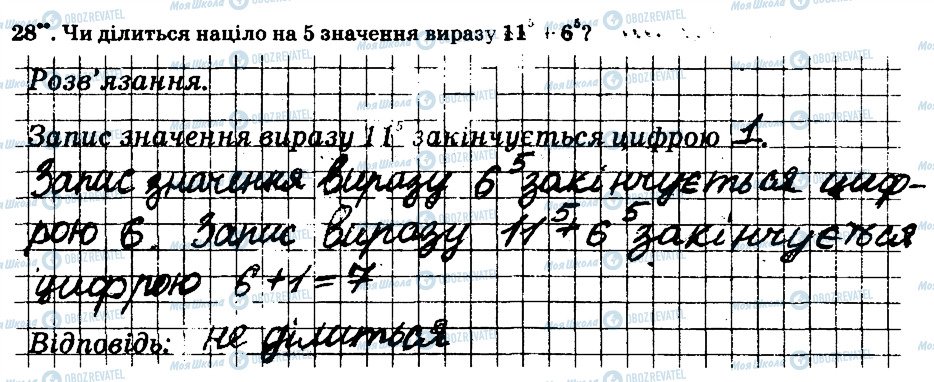 28••. Чи ділиться націло на 5 значення виразу 11⁵ + 6⁵?
Розв'язання.
Запис значення виразу 11⁵ закінчується цифрою 1.
Запис значення виразу 6⁵ закінчується циф-
рою 6. Запис виразу 11⁵+6⁵ закінчується
цифрою 6+1=7
Відповідь: не ділиться